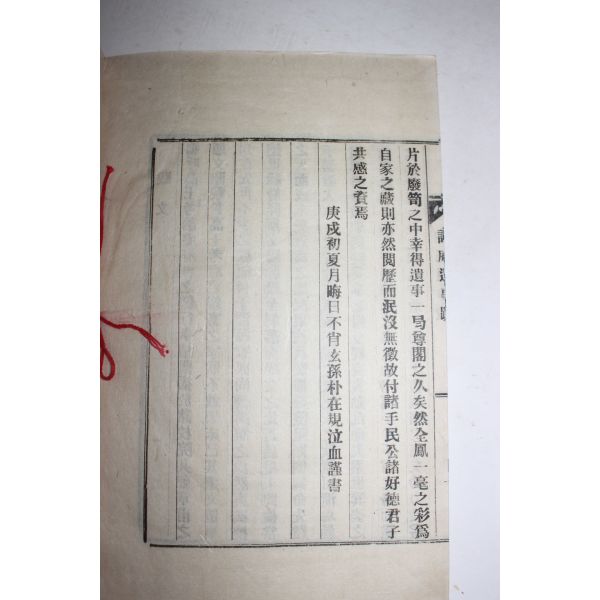 片於廢筒之中幸得遺事一局尊閣之久矣然全鳳一毫之彩爲
自家之藏則亦然閱歷而泯沒無徵故付諸手民公諸好德君子
共感之資焉
庚戌初夏月晦日不肖玄孫朴在規泣血謹書